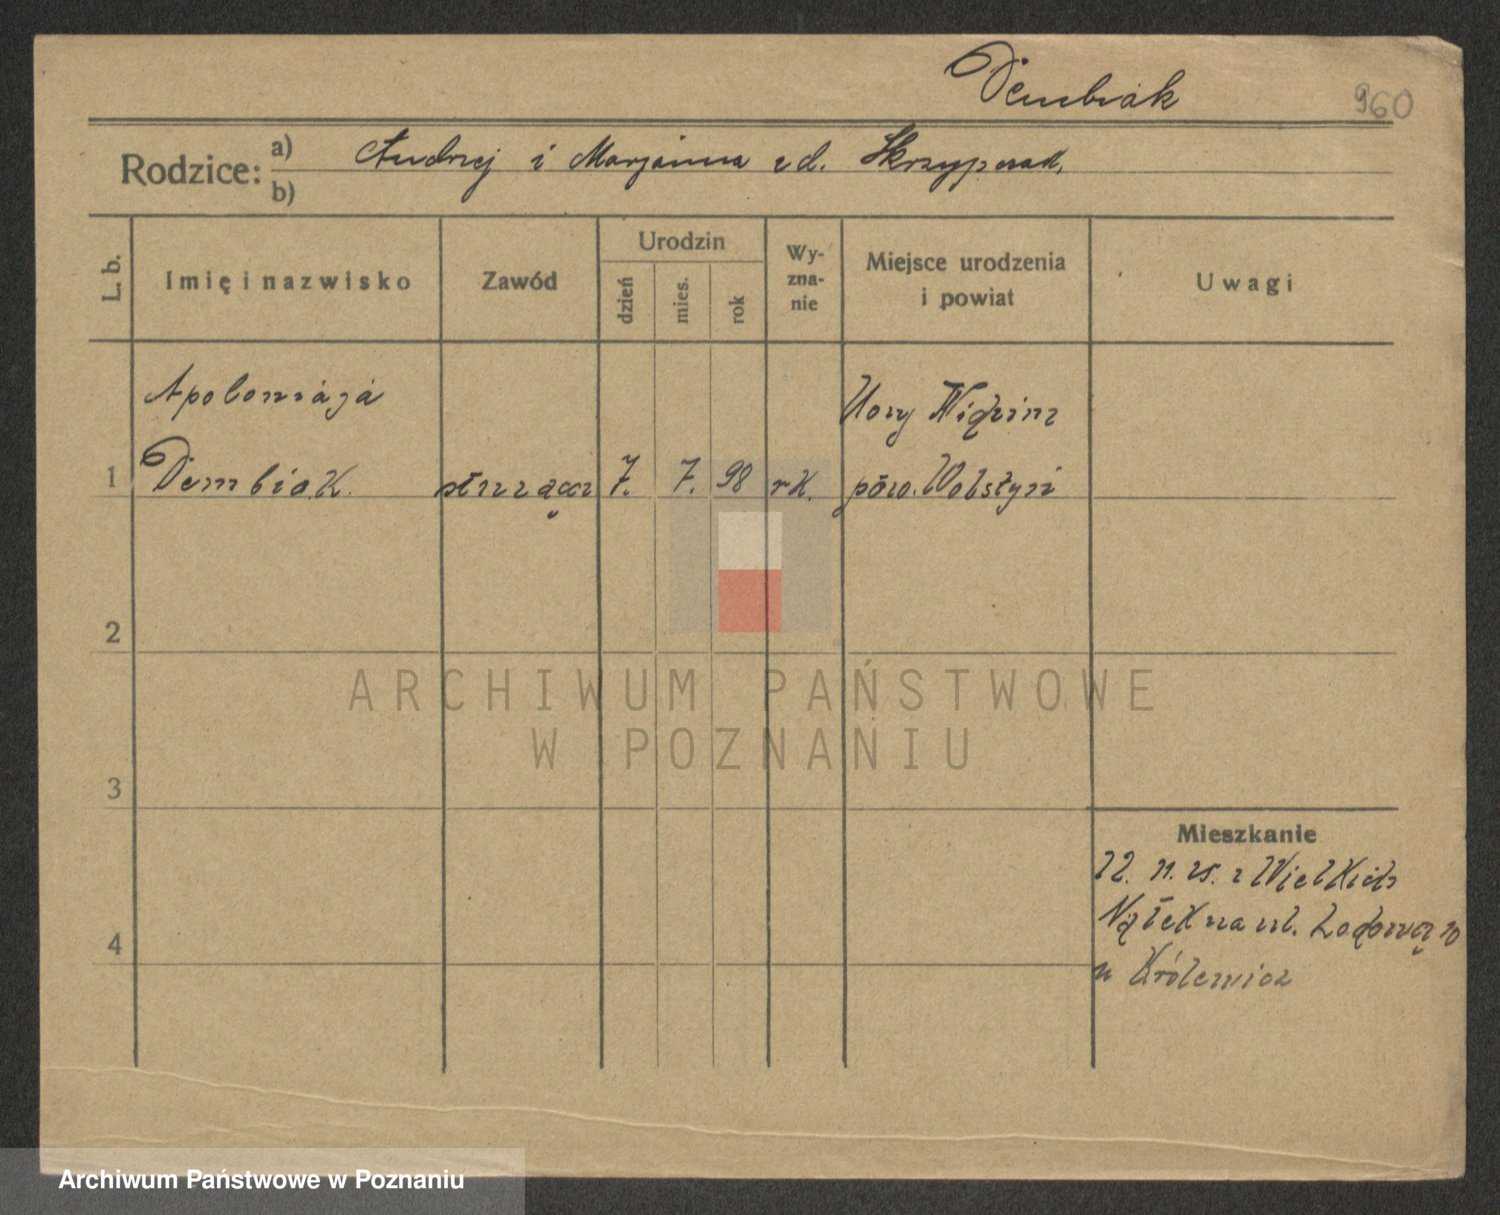 Dembiak
960
Rodzice: a) Andrzej i Marjanna zd. Skrzypczak,
b)
L. b. Imię i nazwisko Zawód Urodzin dzień mies. rok Wy-zna-nie Miejsce urodzenia i powiat Uwagi
Apolonjaja
1 Dembiak. służąca 7. 7. 98 rk. pow. Wolsztyn
2
3
4
Mieszkanie
22. 11. 25. z Wielkich
na ul. 10
u Królewicz
ARCHIWUM PAŃSTWOWE
W POZNANIU
Archiwum Państwowe w Poznaniu